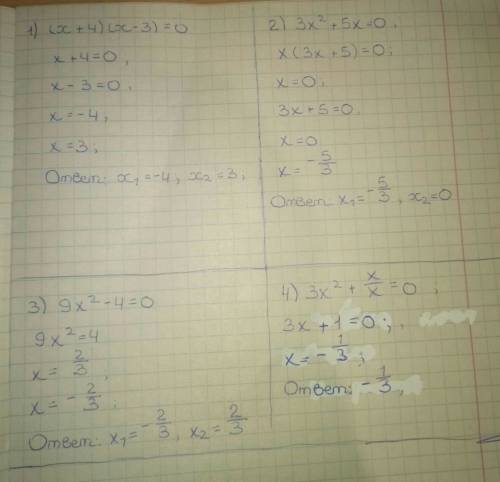 1) (x+4)(x-3)=0
x+4=0,
x-3=0,
x=-4,
x=3;
Ответ: x₁=-4, x₂=3;
2) 3x²+5x=0,
x(3x+5)=0,
x=0,
3x+5=0.
x=0
x=-5/3
Ответ: x₁=-5/3, x₂=0
3) 9x²-4=0
9x²=4
x=2/3,
x=-2/3;
Ответ: x₁=-2/3, x₂=2/3
4) 3x²+x/x=0,
3x+1=0;,
x=-1/3;
Ответ: -1/3,